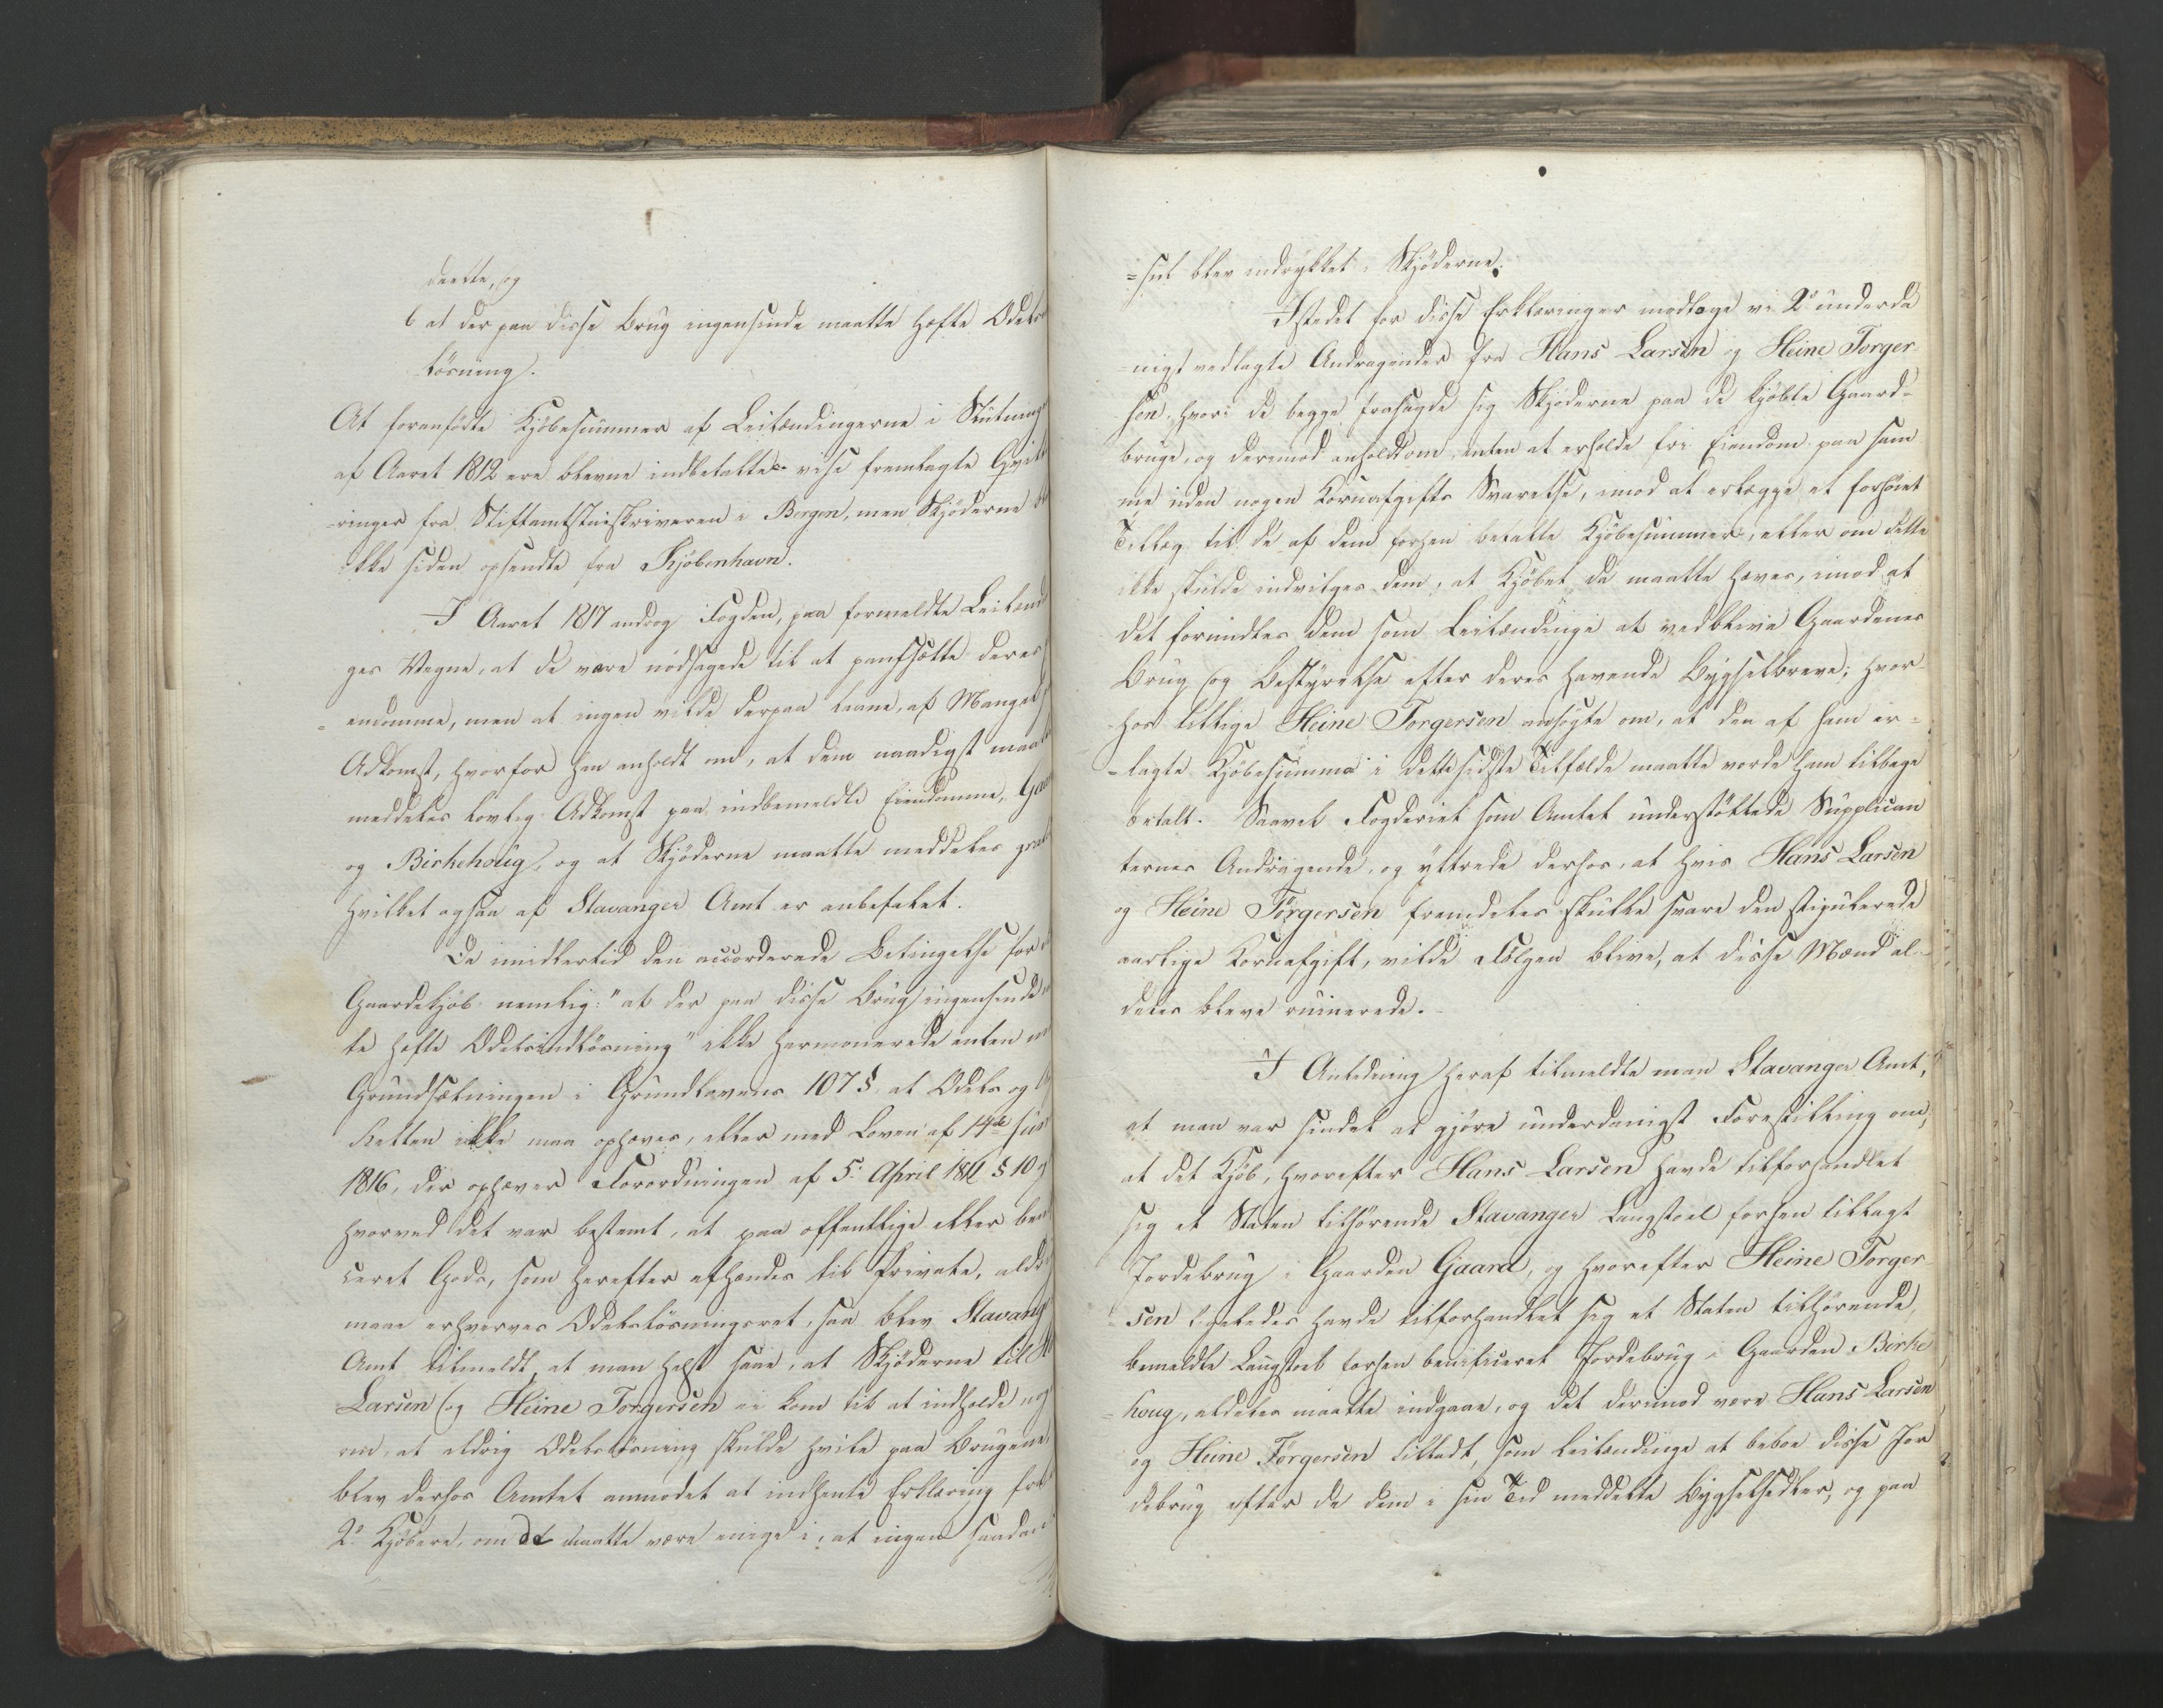 deelte, og
b at der paa disse Brug ingensinde maatte hæfte Odels
løsning.
At foranførte Kjøbesummer af Leilændingerne i Slutning
af Aaret 1812 ere blevne indbetalte vise fremlagte Qvit
-ringer fra Stiftamtstueskriveren i Bergen, men Skjøderne
ikke siden opsendte fra Kjøbenhavn.
I Aaret 1817 androg Fogden, paa formeldte Leilænd
ges Vegne, at de vare nødsagede til at pantsætte deres
endomme, men at ingen vilde derpaa laane, af Mangel
Adkomst, hvorfor han anholdt om, at dem naadigst maatte
meddeles lovlig Adkomst paa indbemeldte Eiendomme, Gaard
og Birkehoug, og at Skjøderne maatte meddeles gratis
hvilket ogsaa af Stavanger Amt er anbefalet.
Da imidlertid den accorderede Betingelse for
Gaardekjøb nemlig: "at der paa disse Brug ingensinde
te hæfte Odelsindløsning" ikke harmonerede enten
Grundsætningen i Grundlovens 107 §, at Odels og
Retten ikke maa ophæves, eller med Loven af 14de
1816, der ophæver Forordningen af 5. April 1811 § 10
hvorved det var bestemt, at paa offentlige eller bene
ceret Gods, som herefter afhændes til Private, aldrig
maae erhverves Odelsløsningsret, saa blev Stavanger
Amt tilmeldt, at man helst saae, at Skjøderne til
Larsen og Heine Torgersen ei kom til at indholde
om, at aldrig Odelsløsning skulde hvile paa Brugene
blev derhos Amtet anmodet at indhente Erklæring fra
2de Kjøbere, om de maatte være enige i, at ingen saadan
=sul blev indrykket i Skjøderne.
Istedet for disse Erklæringer modtoge vi 2de underda
-nigst vedlagte Andragender fra Hans Larsen og Heine Torger
sen, hvori de begge frasagde sig Skjøderne paa de kjøbte Gaard-
bruge, og derimod anholdt om, enten at erholde fri Eiendom paa sam
me uden nogen Kornafgifts Svarelse, imod at erlægge et forhøiet
Tillæg til de af dem forhen betalte Kjøbesummer, eller om dette
ikke skulde indvilges dem, at Kjøbet da maatte hæves, imod at
det forundtes dem som Leilændinge at vedblive Gaardenes
Brug og Bestyrelse efter deres havende Bygselbreve; hvor-
hos tillige Heine Torgersen ansøgte om, at den af ham er=
-lagte Kjøbesumma i dette sidste Tilfælde maatte vorde ham tilbage
betalt. Saavel Fogderiet som Amtet understøttede Supplican
ternes Andragende, og yttrede derhos, at hvis Hans Larsen
og Heine Torgersen fremdeles skulle svare den stipulerede
aarlige Kornafgift, vilde Følgen blive, at disse Mænd al-
deles bleve ruinerede.
I Anledning heraf tilmeldte man Stavanger Amt,
at man var sindet at gjøre underdanigst Forestilling om,
at det Kjøb, hvorefter Hans Larsen havde tilforhandlet
sig et Staten tilhørende Stavanger Laugstoel forhen tillagt
Jordebrug i Gaarden Gaard, og hvorefter Heine Torger
sen ligeledes havde tilforhandlet sig et Staten tilhørende,
bemeldte Laugstoel forhen benificeret Jordebrug i Gaarden Birke
=houg, aldeles maatte indgaae, og det derimod være Hans Larsen
og Heine Torgersen tilladt, som Leilændinge at beboe disse Jor
debrug efter de dem i sin Tid meddelte Bygselsedler, og paa